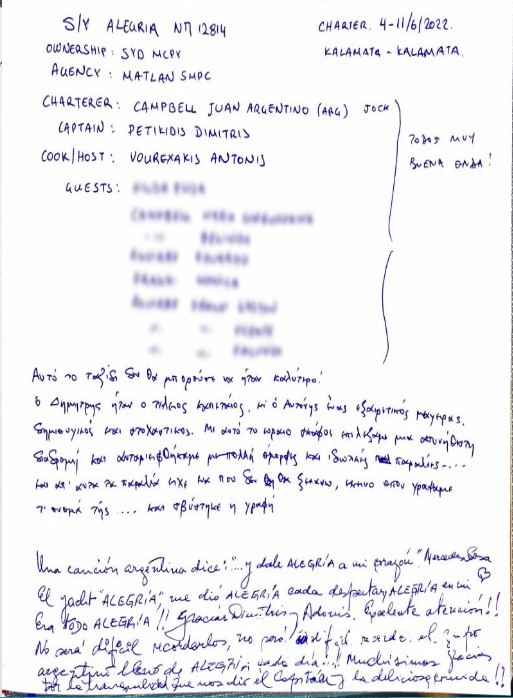 S/Y ALEGRIA ΝΠ 12814
CHARTER. 4-11/6/2022.
OWNERSHIP: SYD MCPY
KALAMATA - KALAMATA.
AGENCY: MATLAN SMPC
CHARTERER: CAMPBELL JUAN ARGENTINO (ARG) JOCK
CAPTAIN: PETIKIDIS DIMITRIS
COOK/HOST: VOUREXAKIS ANTONIS
TODOS MUY
BUENA ONDA!
GUESTS:
Αυτό το ταξίδι δεν θα μπορούσε να ήταν καλύτερο!
Ο Δημήτρης ήταν ο τέλειος καπετάνιος, κι ο Αντώνης ένας εξαιρετικός μάγειρας,
δημιουργικός και στοχαστικός. Με αυτό το ωραίο σκάφος επιλέξαμε μια ασυνήθιστη
διαδρομή και με πολλή όμορφες και παραλίες....
και παραλία είχε που δεν θα ξεχάσω, εκείνο όπου γράψαμε
τ' όνομά της .... και σβύστηκε η γραφή
Una canción argentina dice: "...y dale ALEGRÍA a mi corazón" Mercedes Sosa
El yacht "ALEGRÍA" me dió ALEGRÍA cada despertar, ALEGRÍA en mi
Era TODO ALEGRÍA!! Gracias Dimitris y Adonis. Excelente atención!!
No será difícil recordarlos, no será difícil el grupo
argentino lleno de ALEGRÍA cada día...! Muchísimas gracias
por la tranquilidad que nos dió el Capitán y la deliciosa comida!!